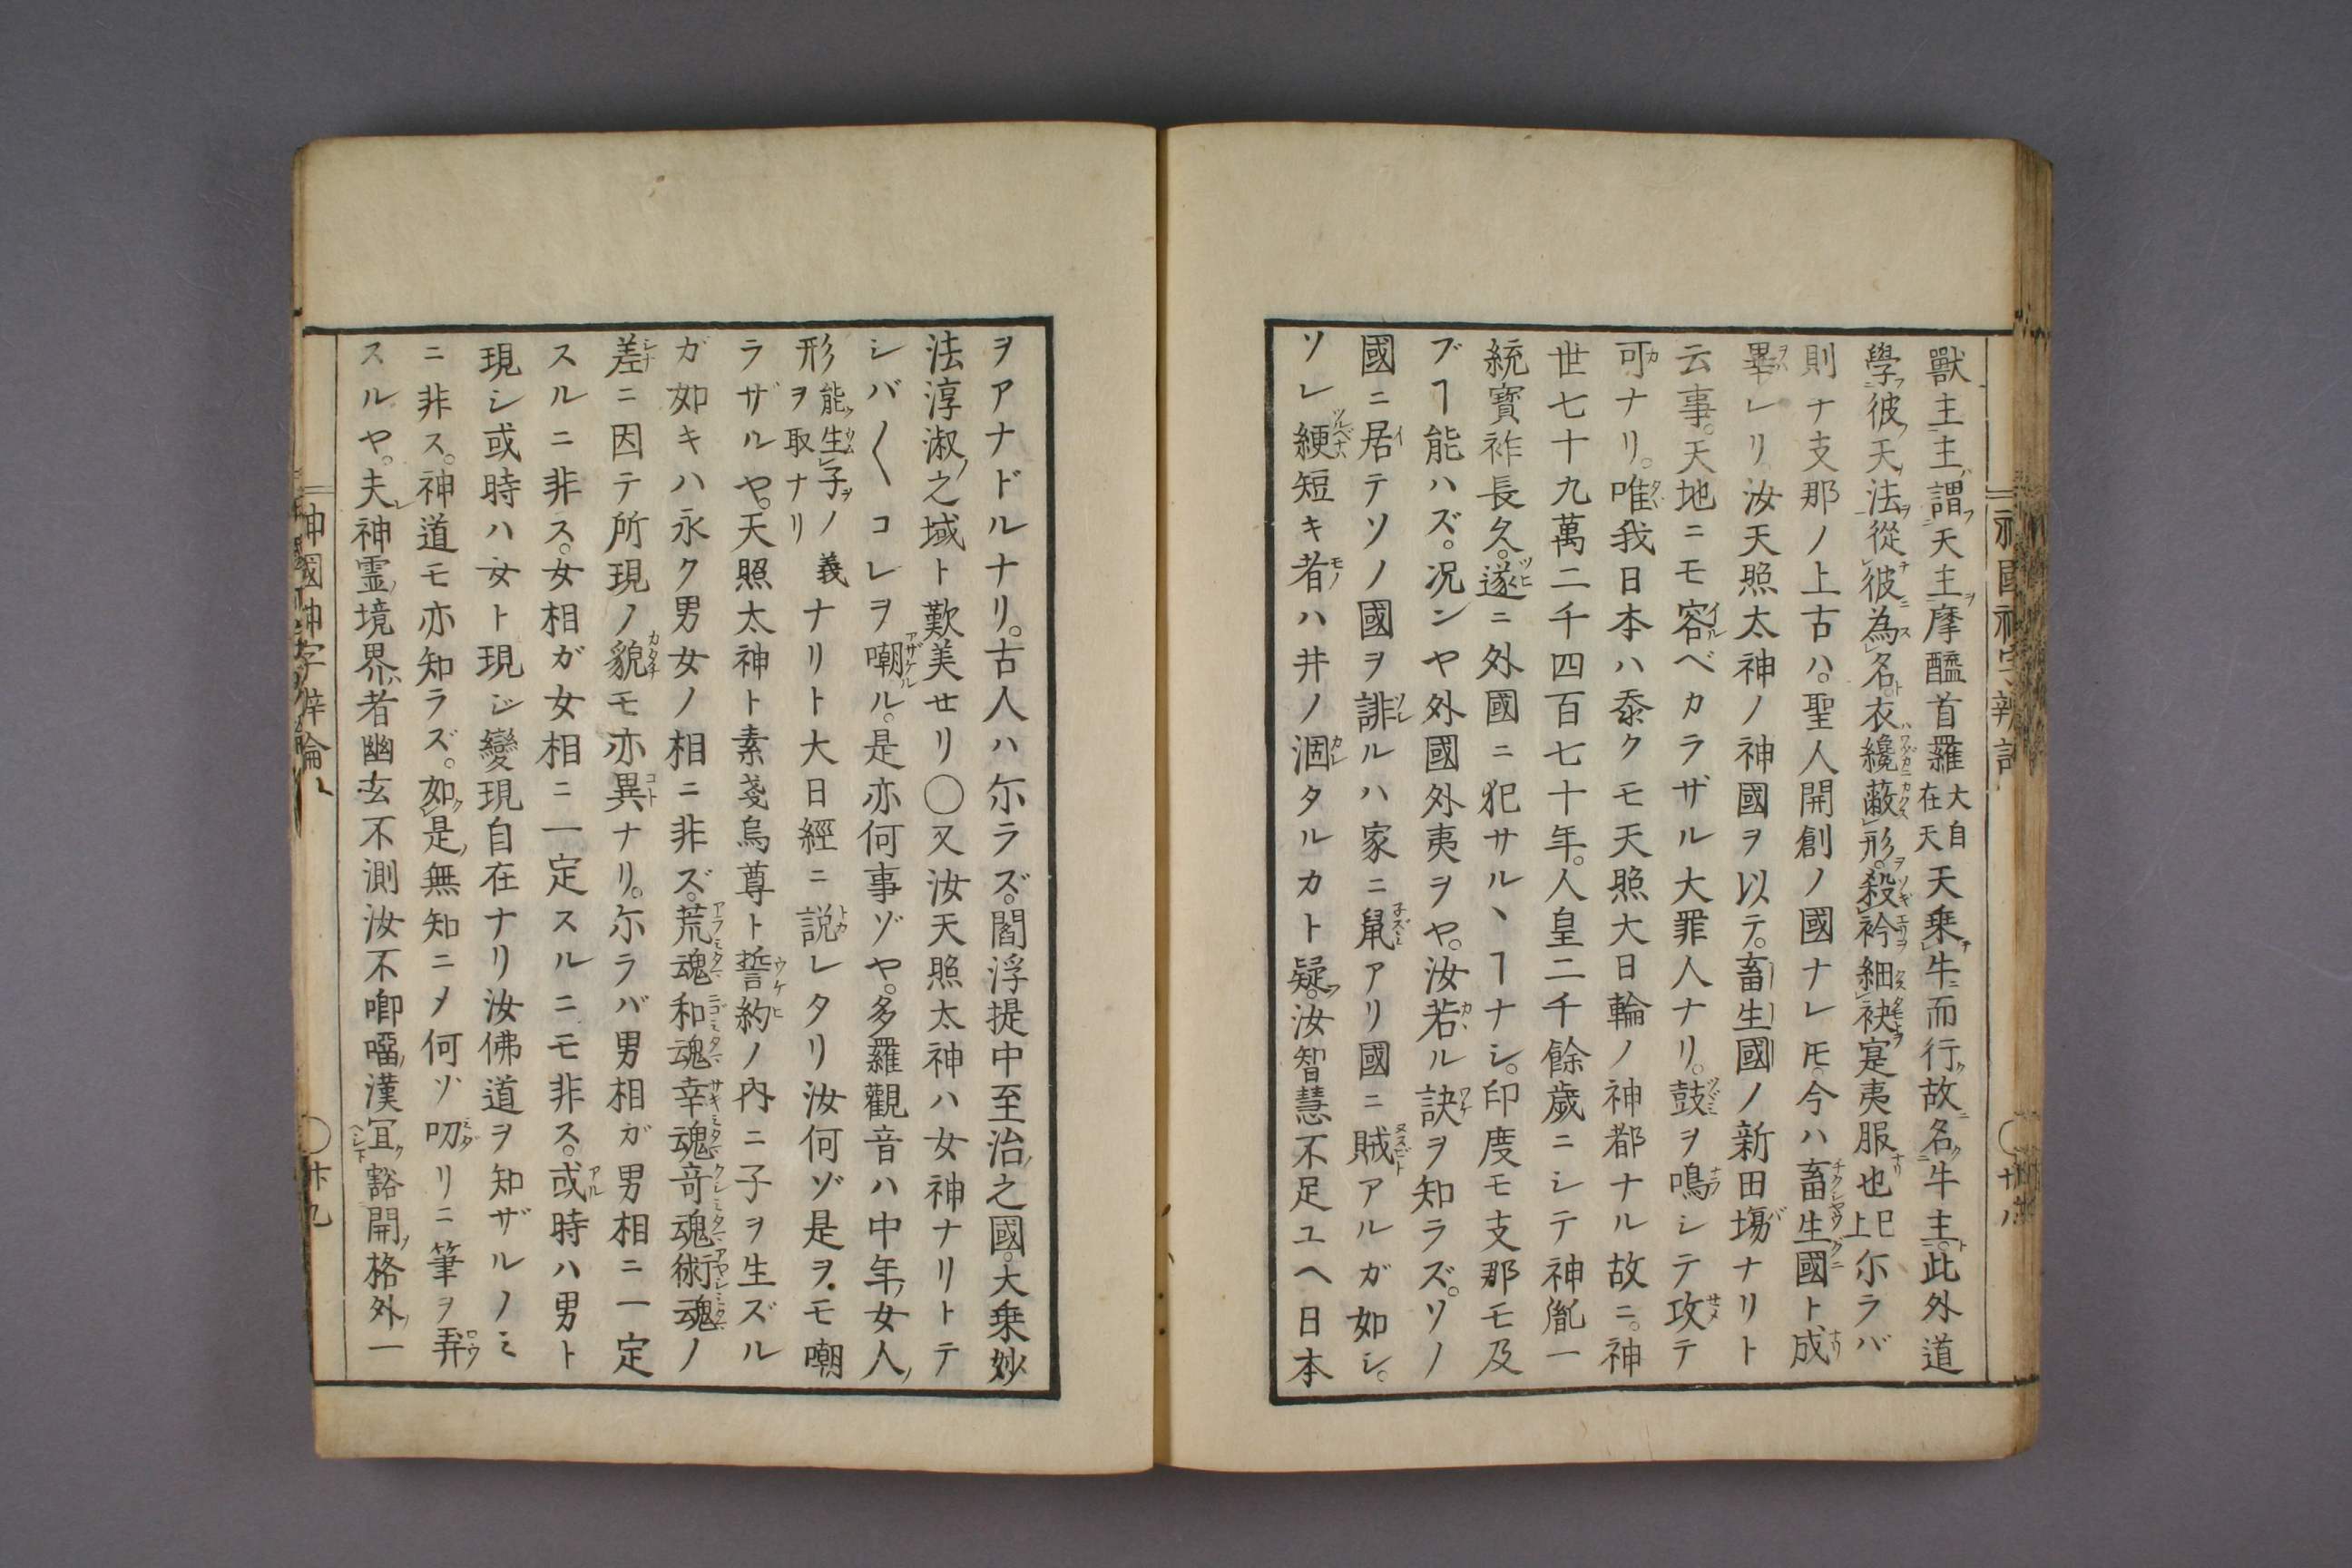 獸主主謂天主摩醯首羅大自在天天乗牛而行故名牛主此外道
學彼天法從彼為名衣纔蔽形殺衿細袂寔夷服也已上尓ラバ
則ナ支那ノ上古ハ。聖人開創ノ國ナレ𪜈。今ハ畜生國ト成
畢レリ汝天照太神ノ神國ヲ以テ。畜生國ノ新田塲ナリト
云事。天地ニモ容ベカラザル大罪人ナリ。鼓ヲ鳴シテ攻テ
可ナリ。唯我日本ハ忝クモ天照大日輪ノ神都ナル故ニ。神
世七十九萬二千四百七十年。人皇二千餘歲ニシテ神胤一
統寶祚長久。遂ニ外國ニ犯サルヽヿナシ。印度モ支那モ及
ブヿ能ハズ。況ンヤ外國外夷ヲヤ。汝若ル訣ヲ知ラズ。ソノ
國ニ居テソノ國ヲ誹ルハ家ニ鼠アリ國ニ賊アルガ如シ。
ソレ綆短キ者ハ井ノ涸タルカト疑。汝智慧不足ユヘ日本
ヲアナドルナリ。古人ハ尓ラズ。閻浮提中至治之國。大乗妙
法淳淑之域ト歎美セリ〇又汝天照太神ハ女神ナリトテ
シバ〱コレヲ嘲ル。是亦何事ゾヤ。多羅觀音ハ中年女人
形ヲ取ナリ能生子ノ義ナリト大日經ニ説レタリ汝何ゾ是ヲモ嘲
ラザルヤ。天照太神ト素戔烏尊ト誓約ノ内ニ子ヲ生ズル
ガ如キハ永ク男女ノ相ニ非ズ。荒魂和魂幸魂奇魂術魂ノ
差ニ因テ所現ノ貌モ亦異ナリ。尓ラバ男相ガ男相ニ一定
スルニ非ス。女相ガ女相ニ一定スルニモ非ス。或時ハ男ト
現シ或時ハ女ト現ジ變現自在ナリ汝佛道ヲ知ザルノミ
ニ非ス。神道モ亦知ラズ。如是無知ニメ何ソ叨リニ筆ヲ弄
スルヤ。夫神霊境界者幽玄不測汝不喞噹漢冝豁開格外一
神國神字辨論
〇廿九